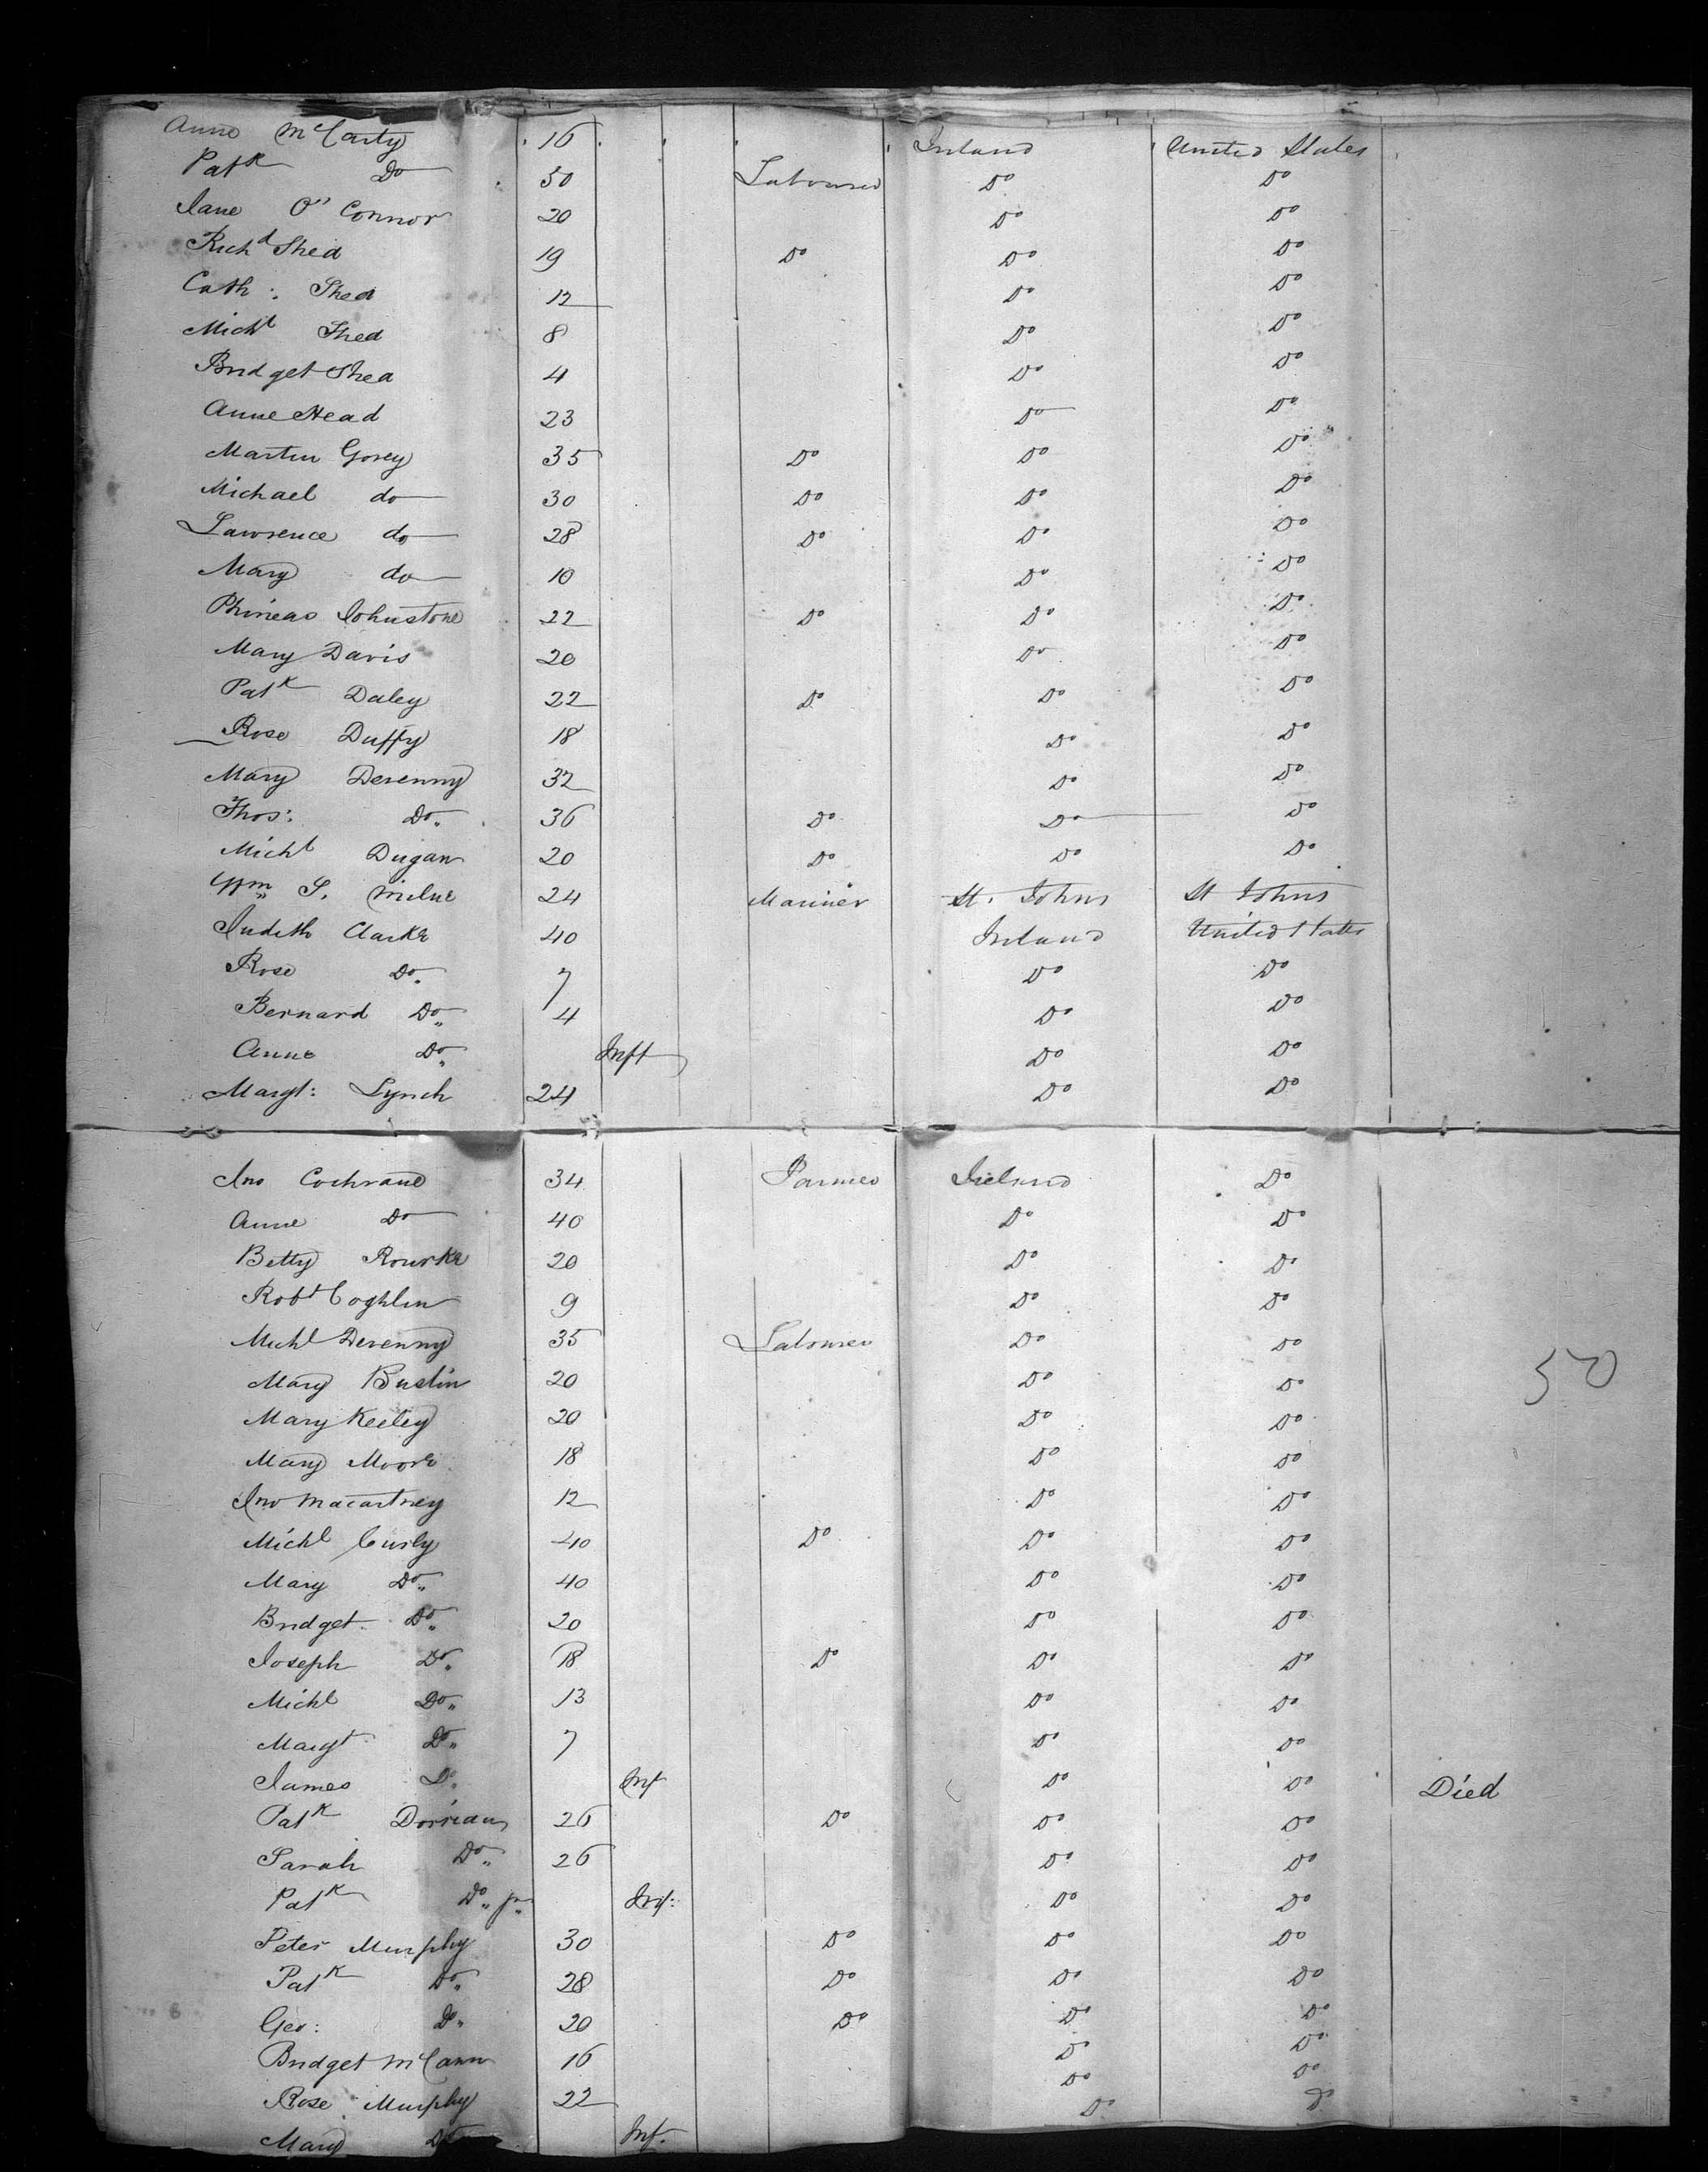 Anne McCarty 16 Ireland United States
Patk Do 50 Labourer Do Do
Jane O'' Connor 20 Do Do
Richd Shea 19 Do Do Do
Cath: Shea 12 Do Do
Michl Shea 8 Do Do
Bridget Shea 4 Do Do
Anne Head 23 Do Do
Martin Gorey 35 Do Do Do
Michael do 30 Do Do Do
Lawrence do 28 Do Do Do
Mary do 10 Do Do
Phineas Johnstone 22 Do Do Do
Mary Davis 20 Do Do
Patk Daley 22 Do Do Do
Rose Duffy 18 Do Do
Mary Devenny 32 Do Do
Thos: Do 36 Do Do Do
Michl Dugan 20 Do Do Do
Wm S. Milne 24 Mariner St. Johns St Johns
Judith Clarke 40 Ireland United States
Rose Do 7 Do Do
Bernard Do 4 Do Do
Anne Do Inft Do Do
Margt: Lynch 24 Do Do
Jno Cochrane 34 Farmer Ireland Do
Anne Do 40 Do Do
Betty Rourke 20 Do Do
Robt Coghlin 9 Do Do
Michl Devenny 35 Labourer Do Do
Mary Bustin 20 Do Do
50
Mary Keeley 20 Do Do
Mary Moore 18 Do Do
Jno Macartney 12 Do Do
Michl Curly 40 Do Do Do
Mary Do 40 Do Do
Bridget Do 20 Do Do
Joseph Do 18 Do Do Do
Michl Do 13 Do Do
Margt Do 7 Do Do
James Do Inf Do Do Died
Patk Dorrian 26 Do Do Do
Sarah Do 26 Do Do
Patk Do Jr Inf: Do Do
Peter Murphy 30 Do Do Do
Patk Do 28 Do Do Do
Geo: Do 20 Do Do Do
Bridget McCann 16 Do Do
Rose Murphy 22 Do Do
Mary Do Inf. Do Do